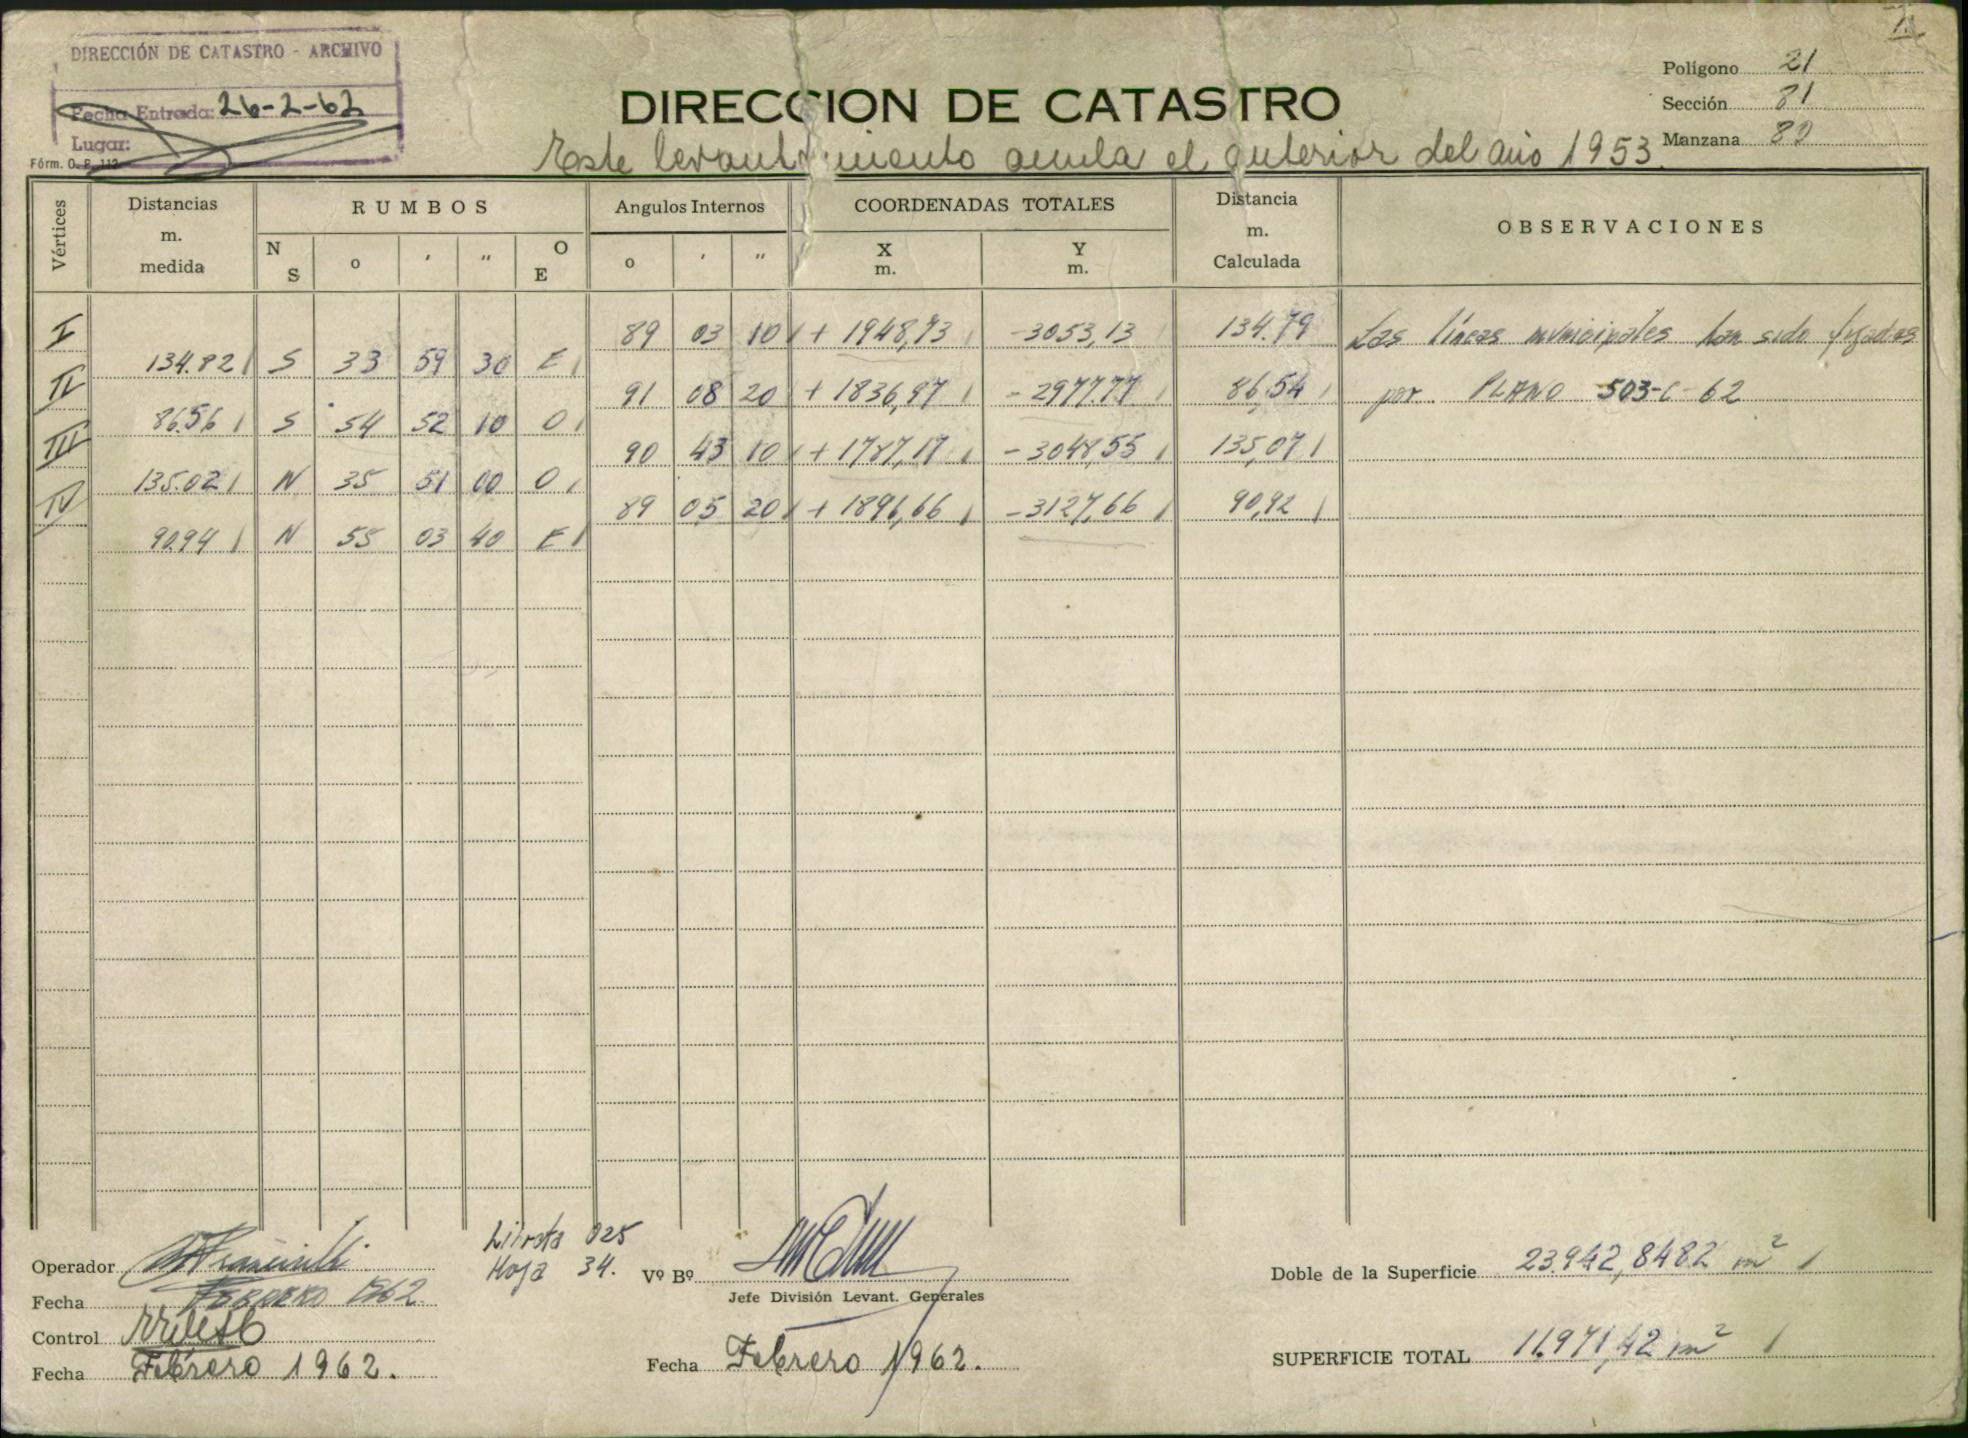 1.
DIRECCIÓN DE CATASTRO - ARCHIVO
Fecha Entrada: 26-2-62
Lugar:
Fórm. O. P. 112
DIRECCION DE CATASTRO
Este levantamiento anula el anterior del año 1953.
Polígono 21
Sección 81
Manzana 80
Vértices Distancias m. medida RUMBOS Angulos Internos COORDENADAS TOTALES Distancia m. Calculada OBSERVACIONES
N S o ' " O E o ' " X m. Y m.
I 89 03 10 + 1948,73 -3053,13 134.79 Las líneas municipales han sido fijadas
134.82 S 33 59 30 E
II 91 08 20 + 1836,97 -2977,77 86,54 por PLANO 503-C-62
86.56 S 54 52 10 O
III 90 43 10 + 1787,17 -3048,55 135,07
135.02 N 35 51 00 O
IV 89 05 20 + 1896,66 -3127,66 90,92
90.94 N 55 03 40 E
Operador
Libreta 025
Hoja 34.
Fecha FEBRERO 1962
Control
Fecha Febrero 1962.
Vº Bº
Jefe División Levant. Generales
Fecha Febrero 1962.
Doble de la Superficie 23.942,8482 m²
SUPERFICIE TOTAL 11.971,42 m²